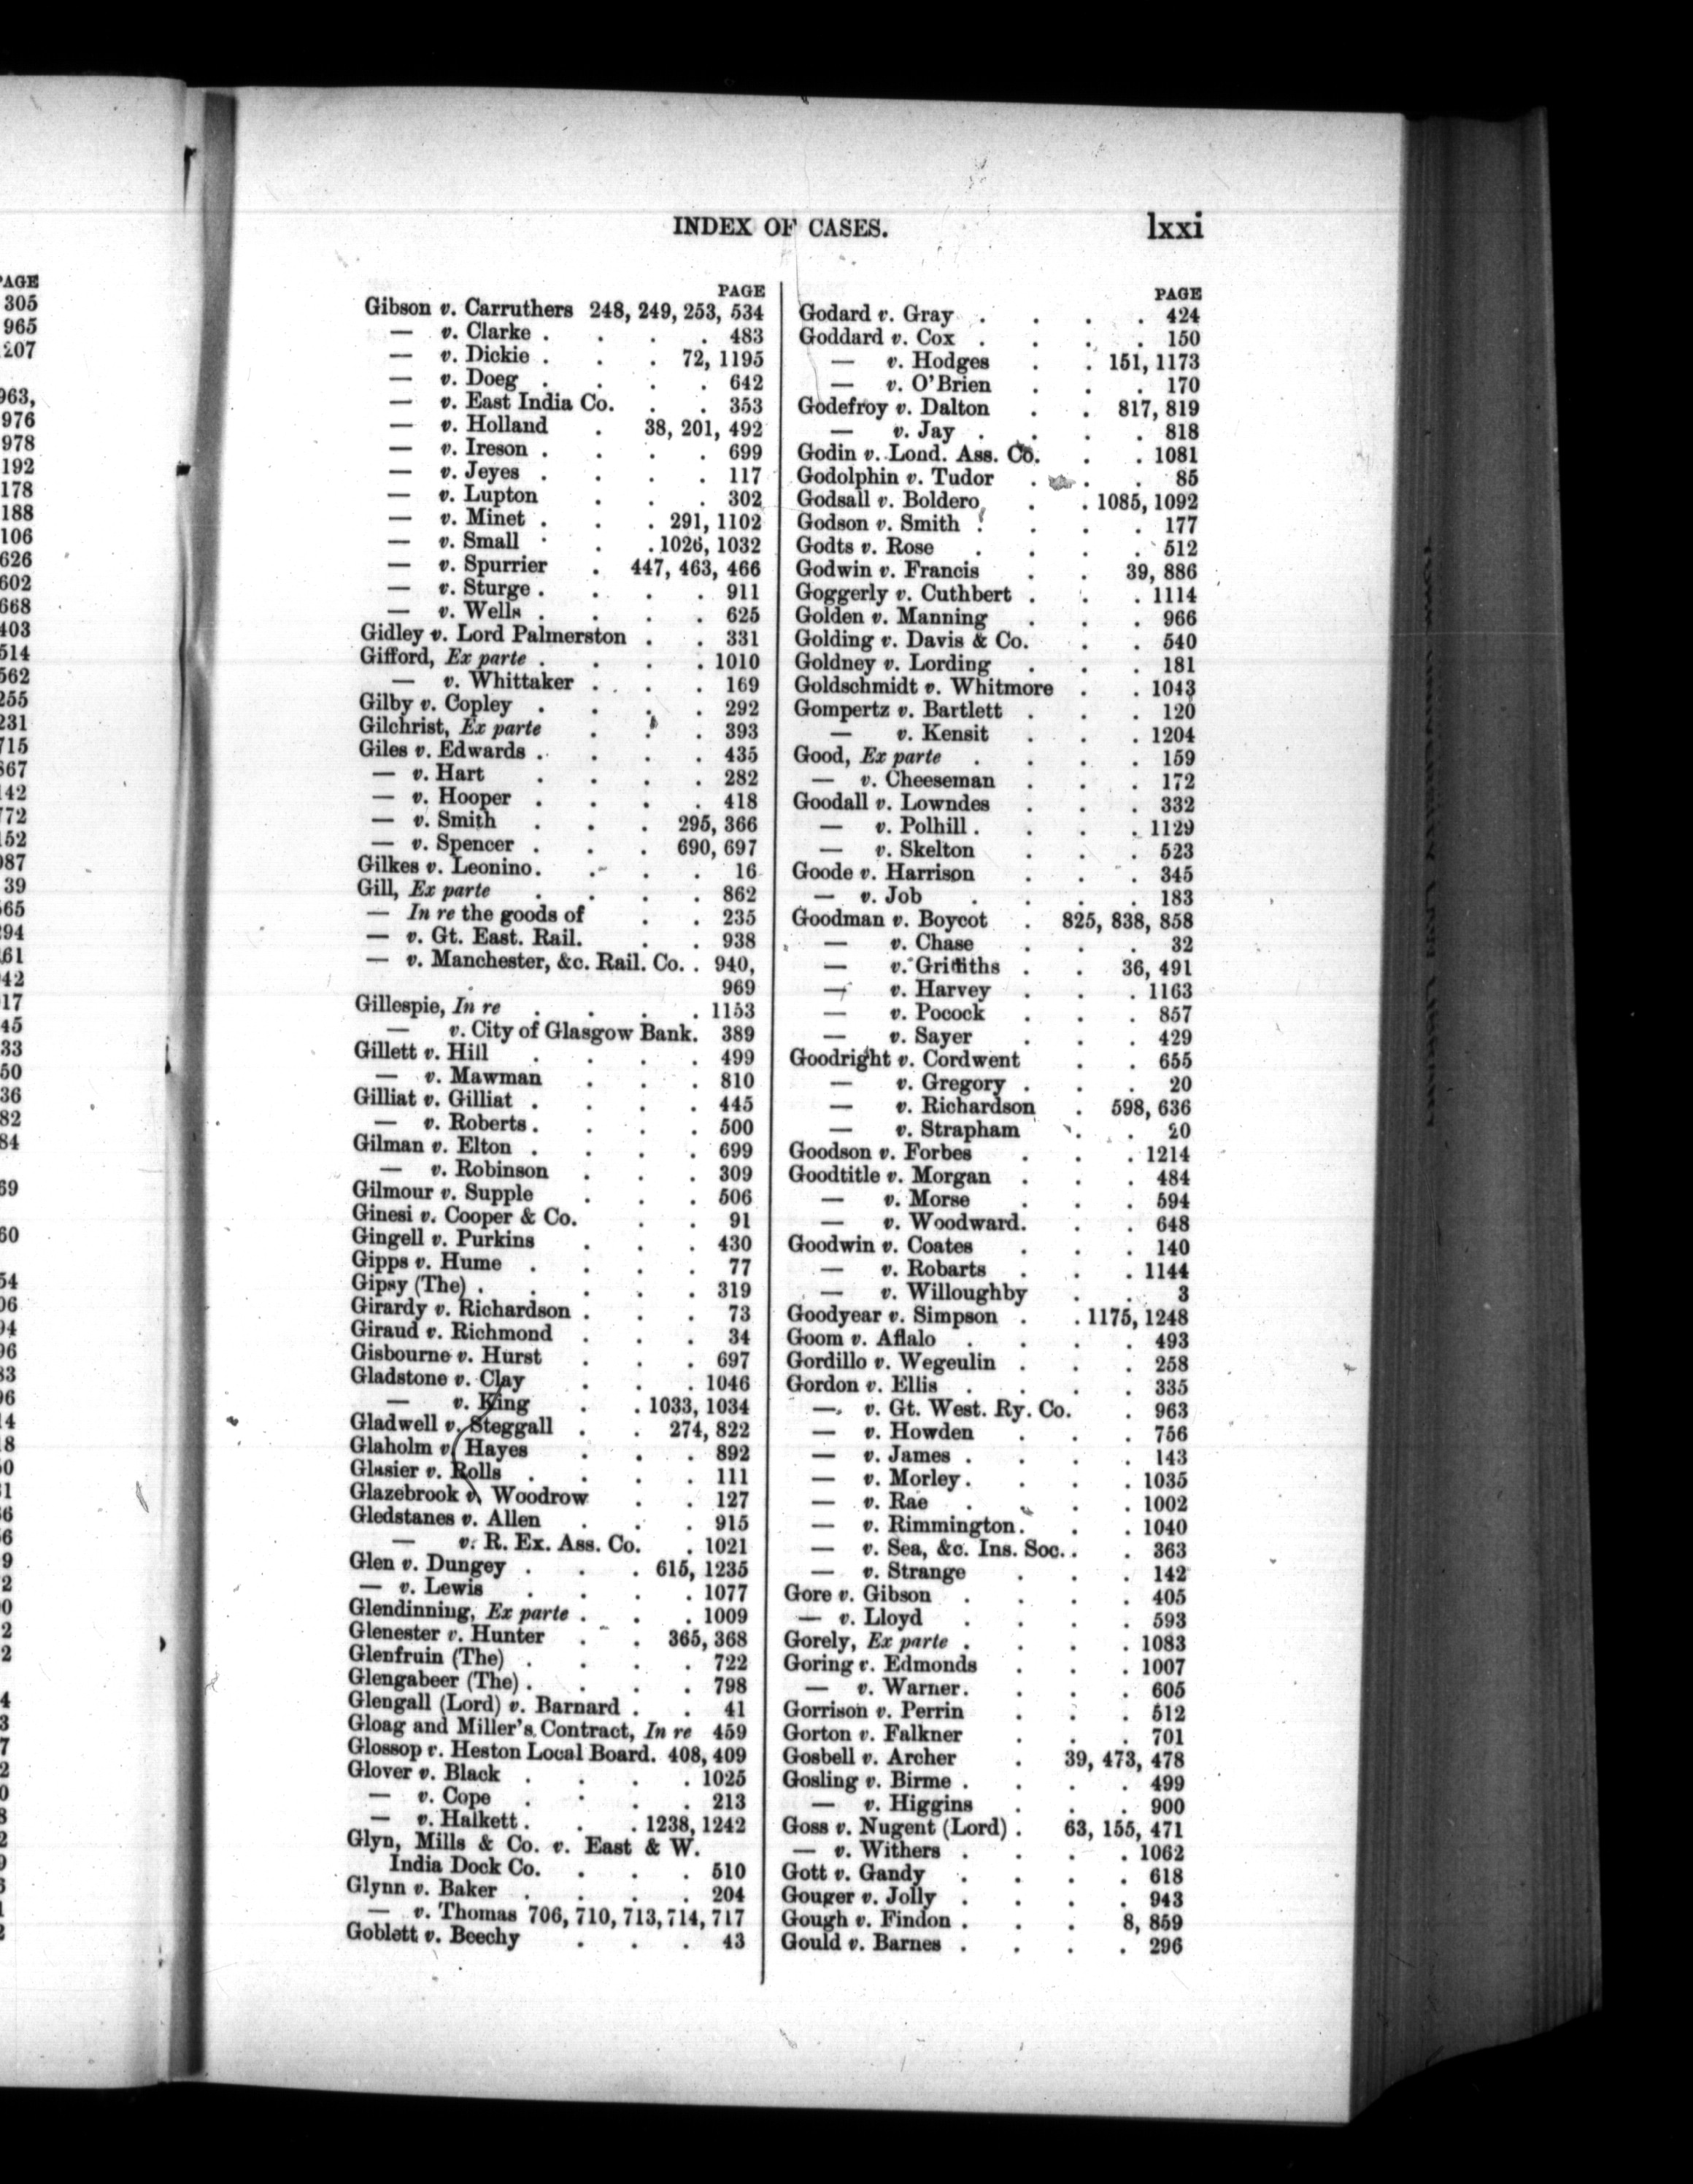 INDEX OF CASES. lxxi
PAGE
Gibson v. Carruthers 248, 249, 253, 534
— v. Clarke . . . . 483
— v. Dickie . . . 72, 1195
— v. Doeg . . . . 642
— v. East India Co. . . 353
— v. Holland . 38, 201, 492
— v. Ireson . . . . 699
— v. Jeyes . . . . 117
— v. Lupton . . . 302
— v. Minet . . . 291, 1102
— v. Small . . . 1026, 1032
— v. Spurrier . 447, 463, 466
— v. Sturge . . . . 911
— v. Wells . . . . 625
Gidley v. Lord Palmerston . . 331
Gifford, Ex parte . . . . 1010
— v. Whittaker . . . 169
Gilby v. Copley . . . . 292
Gilchrist, Ex parte . . . 393
Giles v. Edwards . . . . 435
— v. Hart . . . . 282
— v. Hooper . . . . 418
— v. Smith . . . 295, 366
— v. Spencer . . . 690, 697
Gilkes v. Leonino . . . . 16
Gill, Ex parte . . . . 862
— In re the goods of . . 235
— v. Gt. East. Rail. . . 938
— v. Manchester, &c. Rail. Co. . 940,
969
Gillespie, In re . . . . 1153
— v. City of Glasgow Bank. 389
Gillett v. Hill . . . . 499
— v. Mawman . . . 810
Gilliat v. Gilliat . . . . 445
— v. Roberts . . . . 500
Gilman v. Elton . . . . 699
— v. Robinson . . . 309
Gilmour v. Supple . . . 506
Ginesi v. Cooper & Co. . . 91
Gingell v. Purkins . . . 430
Gipps v. Hume . . . . 77
Gipsy (The) . . . . . 319
Girardy v. Richardson . . . 73
Giraud v. Richmond . . . 34
Gisbourne v. Hurst . . . 697
Gladstone v. Clay . . . 1046
— v. King . . 1033, 1034
Gladwell v. Steggall . . 274, 822
Glaholm v. Hayes . . . 892
Glasier v. Rolls . . . . 111
Glazebrook v. Woodrow . . 127
Gledstanes v. Allen . . . 915
— v. R. Ex. Ass. Co. . 1021
Glen v. Dungey . . . 615, 1235
— v. Lewis . . . . 1077
Glendinning, Ex parte . . . 1009
Glenester v. Hunter . . 365, 368
Glenfruin (The) . . . . 722
Glengabeer (The) . . . . 798
Glengall (Lord) v. Barnard . . 41
Gloag and Miller's Contract, In re 459
Glossop v. Heston Local Board. 408, 409
Glover v. Black . . . . 1025
— v. Cope . . . . 213
— v. Halkett . . . 1238, 1242
Glyn, Mills & Co. v. East & W.
India Dock Co. . . . 510
Glynn v. Baker . . . . 204
— v. Thomas 706, 710, 713, 714, 717
Goblett v. Beechy . . . 43
PAGE
Godard v. Gray . . . . 424
Goddard v. Cox . . . . 150
— v. Hodges . . 151, 1173
— v. O'Brien . . . 170
Godefroy v. Dalton . . 817, 819
— v. Jay . . . . 818
Godin v. Lond. Ass. Co. . . 1081
Godolphin v. Tudor . . . 85
Godsall v. Boldero . . 1085, 1092
Godson v. Smith . . . . 177
Godts v. Rose . . . . 512
Godwin v. Francis . . 39, 886
Goggerly v. Cuthbert . . . 1114
Golden v. Manning . . . 966
Golding v. Davis & Co. . . 540
Goldney v. Lording . . . 181
Goldschmidt v. Whitmore . . 1043
Gompertz v. Bartlett . . . 120
— v. Kensit . . . 1204
Good, Ex parte . . . . 159
— v. Cheeseman . . . 172
Goodall v. Lowndes . . . 332
— v. Polhill . . . . 1129
— v. Skelton . . . 523
Goode v. Harrison . . . 345
— v. Job . . . . 183
Goodman v. Boycot . 825, 838, 858
— v. Chase . . . 32
— v. Griffiths . . 36, 491
— v. Harvey . . . 1163
— v. Pocock . . . 857
— v. Sayer . . . 429
Goodright v. Cordwent . . 655
— v. Gregory . . . 20
— v. Richardson . 598, 636
— v. Strapham . . 20
Goodson v. Forbes . . . 1214
Goodtitle v. Morgan . . . 484
— v. Morse . . . 594
— v. Woodward. . . 648
Goodwin v. Coates . . . 140
— v. Robarts . . . 1144
— v. Willoughby . . 3
Goodyear v. Simpson . . 1175, 1248
Goom v. Aflalo . . . . 493
Gordillo v. Wegeulin . . . 258
Gordon v. Ellis . . . . 335
— v. Gt. West. Ry. Co. . 963
— v. Howden . . . 756
— v. James . . . . 143
— v. Morley . . . . 1035
— v. Rae . . . . 1002
— v. Rimmington . . . 1040
— v. Sea, &c. Ins. Soc. . . 363
— v. Strange . . . 142
Gore v. Gibson . . . . 405
— v. Lloyd . . . . 593
Gorely, Ex parte . . . . 1083
Goring v. Edmonds . . . 1007
— v. Warner . . . . 605
Gorrison v. Perrin . . . 512
Gorton v. Falkner . . . 701
Gosbell v. Archer . 39, 473, 478
Gosling v. Birme . . . . 499
— v. Higgins . . . 900
Goss v. Nugent (Lord) . 63, 155, 471
— v. Withers . . . . 1062
Gott v. Gandy . . . . 618
Gouger v. Jolly . . . . 943
Gough v. Findon . . . 8, 859
Gould v. Barnes . . . . 296